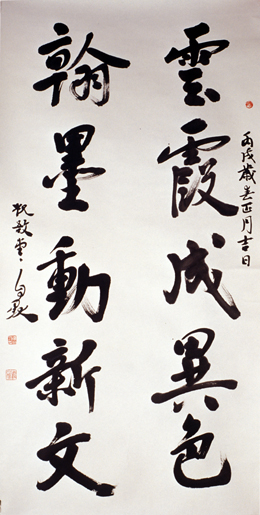 雲霞成異色
翰墨動新文
丙戌歲春正月吉日